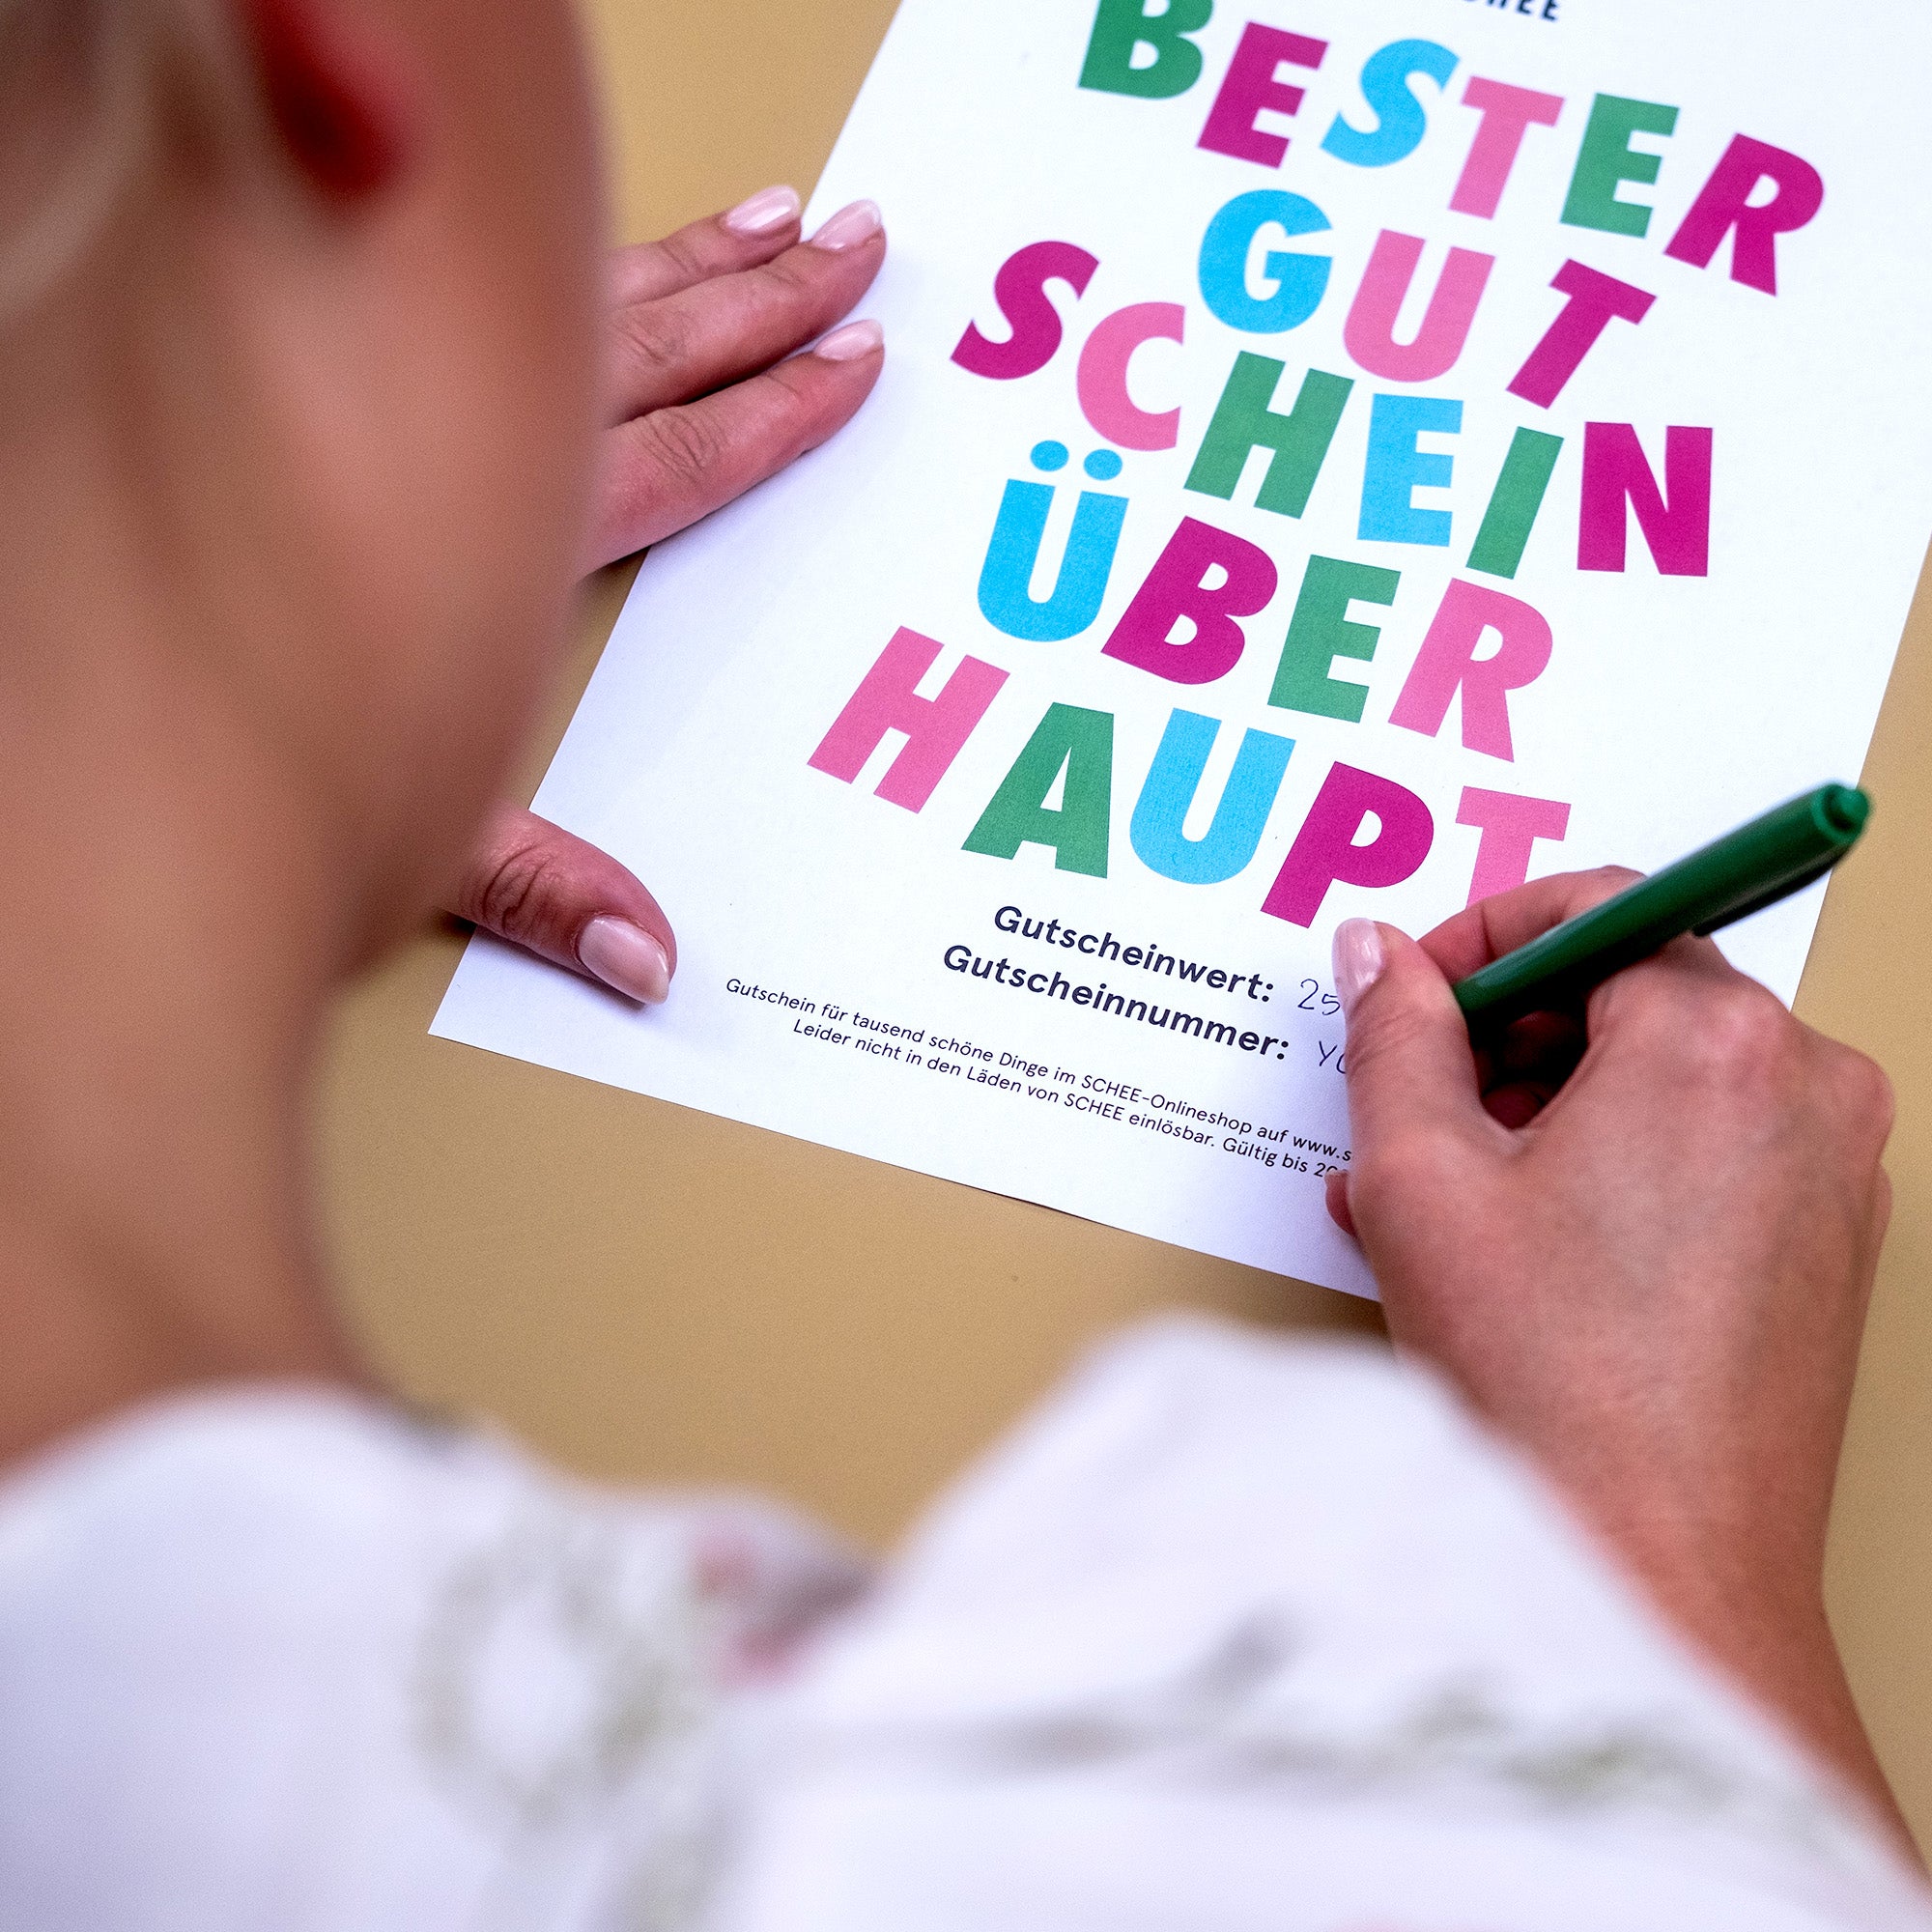 BESTER
GUT
SCHEIN
ÜBER
HAUPT
Gutscheinwert: 25
Gutscheinnummer:
Gutschein für tausend schöne Dinge im SCHEE-Onlineshop auf
Leider nicht in den Läden von SCHEE einlösbar. Gültig bis